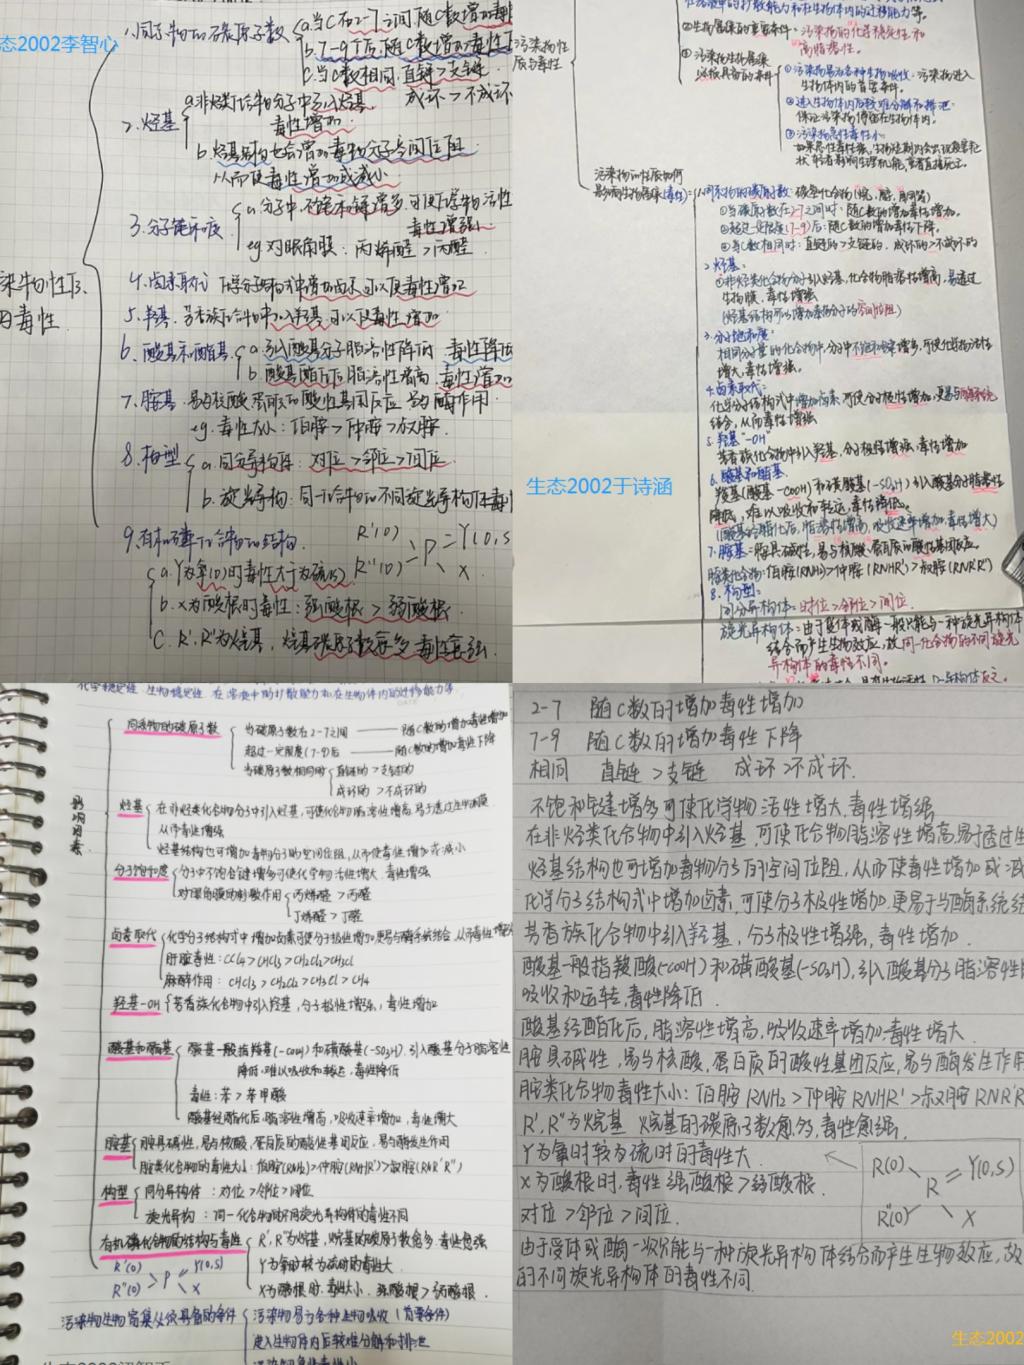 生态2002李智心
1.同系物的碳原子数
a.当C在2-7之间随C数增加毒性
b.7-9个后随C数增加毒性下
c.当C数相同:直链>支链
成环>不成环
2.烃基
a.非烃类化合物分子中引入烃基
毒性增加.
b.烃基结构也会增加毒物分子空间位阻
从而使毒性增加或减小
3.分子饱和度
a.分子中,不饱和键增多,可使化学物活性
毒性增强.
eg.对眼角膜:丙烯醛>丙醛.
染物性质
与毒性.
4.卤素取代
5.羟基.芳香族化合物中加入羟基,可以使毒性增加
6.酸基和酯基
a.引入酸基分子脂溶性降低 毒性降低
b.酸基酯化后脂溶性增高,毒性增加
7.胺基.易与核酸蛋白的酸性基团反应 易与酶作用
eg.毒性大小:伯胺>仲胺>叔胺.
8.构型
a.同分异构体:对位>邻位>间位.
b.旋光异构:同一化合物的不同旋光异构体毒
9.有机磷化合物的结构.
R'(O)
R''(O)
P
Y(O,S
X
a.Y为氧(O)时毒性大于为硫(S)
b.X为酸根时毒性:强酸根>弱酸根.
C.R',R''为烷基,烷基碳原子数愈多 毒性愈强.
污染物性
质与毒性
②生物富集的重要条件:污染物的化学稳定性和
高脂溶性.
③污染物生物富集
必须具备的条件
①污染物易为各种生物吸收:污染物进入
生物体内的首要条件.
②进入生物体内后较难分解和排泄:
保证污染物停留在生物体内.
③污染物急性毒性小:
污染物的性质如何
影响生物富集(毒性)
1.同系物的碳原子数:
①当碳原子数在2-7之间时:随C数的增加毒性增加.
②超过一定限度(7-9)后:随C数的增加毒性下降.
③当C数相同时:直链的>支链的.成环的>不成环的
2.烃基:
①非烃类化合物分子引入烃基,化合物脂溶性增高,易透过
生物膜.毒性增强
(烃基结构可以增加毒物分子的空间位阻)
3.分子饱和度:
相同分子量的化合物中,分子中不饱和键增多,可使化学物活性
增大,毒性增强.
4.卤素取代:
化学分子结构式中增加卤素,可使分子极性增加,更易与酶系统
结合,从而毒性增强
5.羟基"-OH"
芳香族化合物中引入羟基,分子极性增强,毒性增加
6.酸基和酯基:
羧基(酸基-COOH)和磺酸基(-SO₃H)引入酸基分子脂溶性
降低,难以吸收和转运,毒性降低.
(酸基经酯化后,脂溶性增高,吸收速率增加,毒性增大)
7.胺基:胺具碱性,易与核酸、蛋白质的酸性基团反应.
胺类化合物:伯胺(RNH₂)>仲胺(RNHR')>叔胺(RNR'R'')
8.构型:
同分异构体:对位>邻位>间位.
旋光异构体:由于受体或酶一般只能与一种旋光异构体
结合而产生生物效应,故同一化合物的不同旋光
异构体的毒性不同.
生态2002于诗涵
化学稳定性.生物稳定性.在溶液中的扩散能力和在生物体内的迁移能力等.
影响因素
同系物的碳原子数
当碳原子数在2-7之间——随C数的增加毒性增加
超过一定限度(7-9)后——随C数的增加毒性下降
当碳原子数相同时
直链的>支链的
成环的>不成环的
烃基
在非烃类化合物分子中引入烃基,可使化合物脂溶性增高,易于透过生物膜
从而毒性增强
烃基结构也可增加毒物分子的空间位阻,从而使毒性增加或减小
分子饱和度
分子中不饱和键增多可使化学物活性增大.毒性增强
对眼角膜的刺激作用
丙烯醛>丙醛
丁烯醛>丁醛
卤素取代
化学分子结构式中增加卤素可使分子极性增加更易与酶系统结合,从而毒性增强
肝脏毒性:CCl₄>CHCl₃>CH₂Cl₂>CH₃Cl
麻醉作用:CHCl₃>CH₂Cl₂>CH₃Cl>CH₄
羟基-OH
芳香族化合物中引入羟基,分子极性增强,毒性增加
酸基和酯基
酸基一般指羧基(-COOH)和磺酸基(-SO₃H).引入酸基分子脂溶性
降低,难以吸收和转运,毒性降低
毒性:苯>苯甲酸
酸基经酯化后,脂溶性增高,吸收速率增加,毒性增大
胺基
胺具碱性,易与核酸,蛋白质的酸性基团反应,易与酶发生作用
胺类化合物的毒性大小:伯胺(RNH₂)>仲胺(RNHR')>叔胺(RNR'R'')
构型
同分异构体:对位>邻位>间位
旋光异构:同一化合物的不同旋光异构体的毒性不同
有机磷化合物的结构与毒性
R'(O)
R''(O)
P
Y(O,S)
X
R',R''为烷基,烷基的碳原子数愈多 毒性愈强
Y为氧时较为硫时的毒性大
X为酸根时.毒性大小.强酸根>弱酸根.
污染物生物富集必须具备的条件
污染物易为各种生物吸收(首要条件)
进入生物体内后较难分解和排泄
污染物急性毒性小
2-7 随C数的增加毒性增加
7-9 随C数的增加毒性下降
相同 直链>支链 成环>不成环.
不饱和键增多可使化学物活性增大,毒性增强
在非烃类化合物中引入烃基,可使化合物脂溶性增高易于透过生
烃基结构也可增加毒物分子的空间位阻,从而使毒性增加或减
化学分子结构式中增加卤素,可使分子极性增加.更易于与酶系统结
芳香族化合物中引入羟基,分子极性增强,毒性增加.
酸基一般指羧酸(-COOH)和磺酸基(-SO₃H),引入酸基分子脂溶性
吸收和运转,毒性降低.
酸基经酯化后,脂溶性增高,吸收速率增加.毒性增大.
胺具碱性,易与核酸,蛋白质的酸性基团反应,易与酶发生作用
胺类化合物毒性大小:伯胺RNH₂>仲胺RNHR'>叔胺RNR'R
R',R''为烷基 烷基的碳原子数愈多,毒性愈强.
Y为氧时较为硫时的毒性大.
X为酸根时,毒性强酸根>弱酸根.
R(O)
R''(O)
R
Y(O,S)
X
对位>邻位>间位.
由于受体或酶一次只能与一种旋光异构体结合而产生生物效应,故
的不同旋光异构体的毒性不同.
生态2002